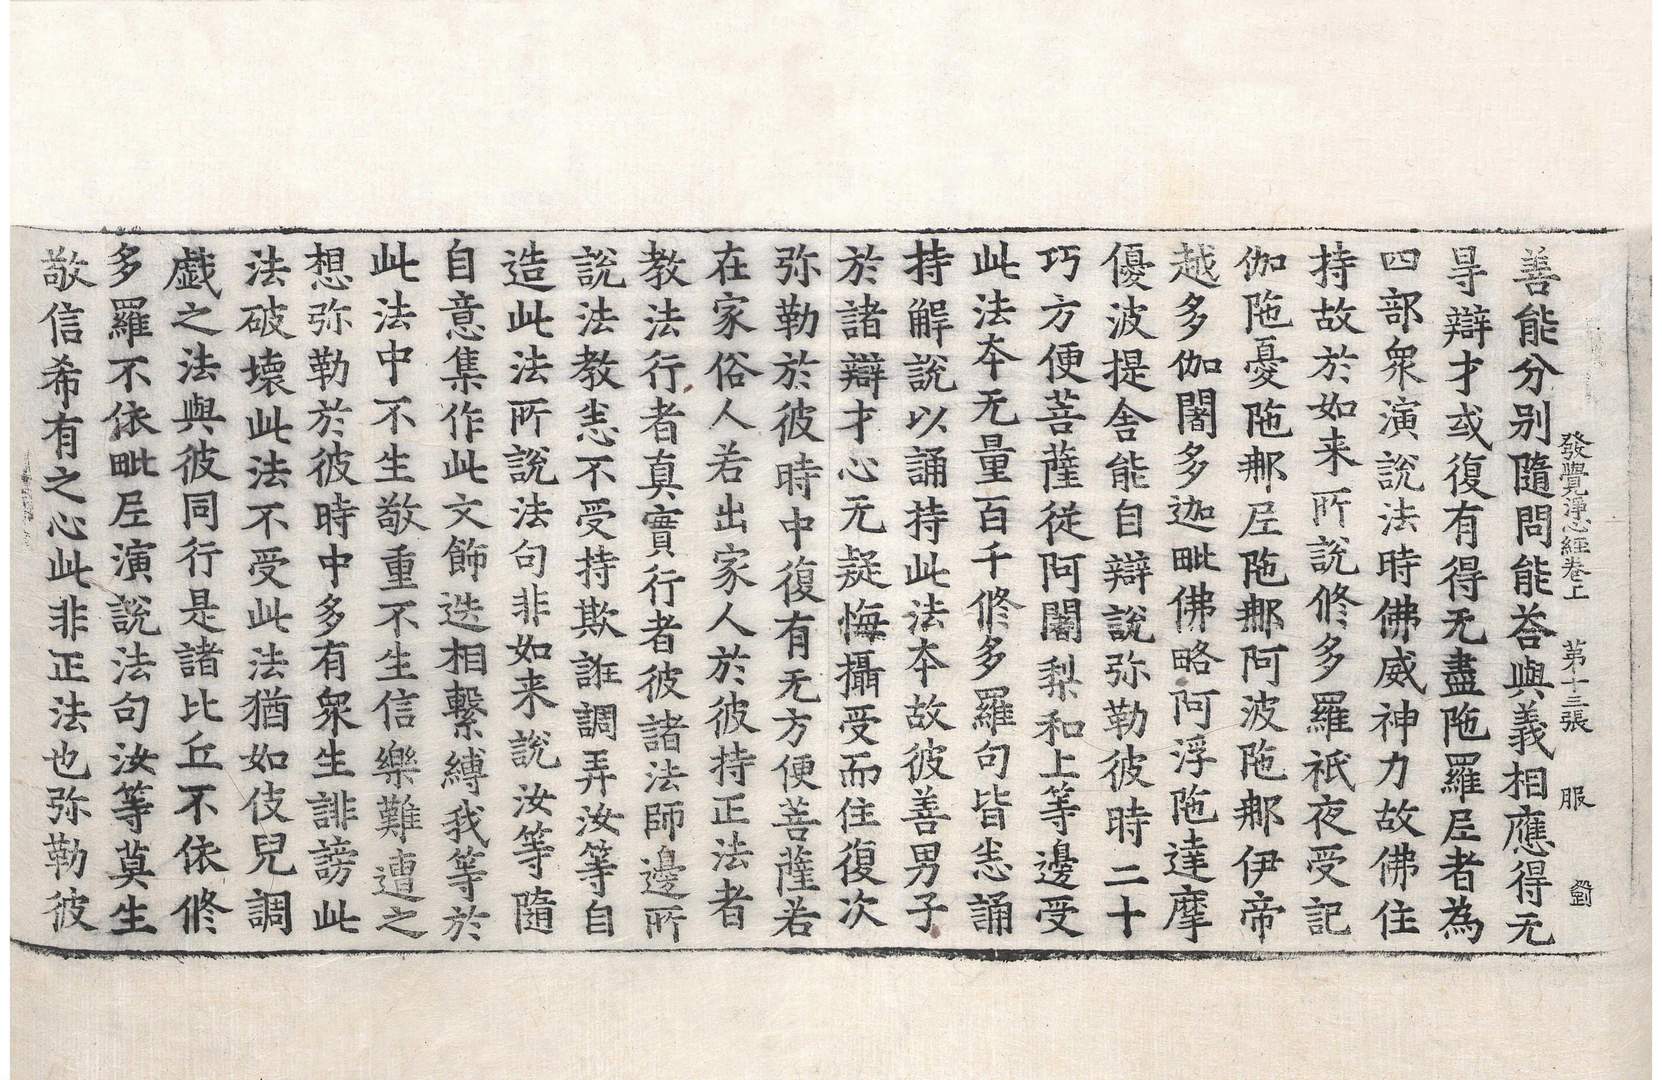 發覺淨心經卷上 第十三張 服 劉
善能分别隨問能荅與義相應得无
㝵辯才或復有得无盡陁羅𡰱者為
四部衆演說法時佛威神力故佛住
持故於如来所說修多羅祇夜受記
伽陁憂陁𨚗𡰱陁𨚗阿波陁𨚗伊帝
越多伽闍多迦毗佛略阿浮陁達摩
優波提舍能自辯說弥勒彼時二十
巧方便菩薩從阿闍梨和上等邊受
此法夲无量百千修多羅句皆悉誦
持解說以誦持此法夲故彼善男子
於諸辯才心无疑悔攝受而住復次
弥勒於彼時中復有无方便菩薩若
在家俗人若出家人於彼持正法者
教法行者真實行者彼諸法師邊所
說法教悉不受持欺誑調弄汝等自
造此法所說法句非如来說汝等隨
自意集作此文飾迭相繫縛我等於
此法中不生敬重不生信樂難遭之
想弥勒於彼時中多有衆生誹謗此
法破壞此法不受此法猶如伎兒調
戯之法與彼同行是諸比丘不依修
多羅不依毗𡰱演說法句汝等莫生
敬信希有之心此非正法也弥勒彼